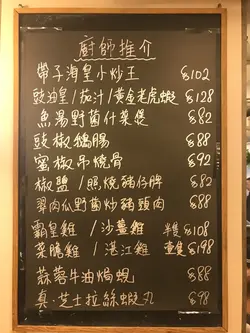 廚師推介
帶子海皇小炒王 $102
豉油皇/茄汁/黃金老虎蝦 $128
魚湯野菌什菜煲 $82
豉椒鵝腸 $88
蜜椒吊燒骨 $92
椒鹽/照燒豬仔脾 $82
翠肉瓜野菌炒豬頸肉 $88
霸皇雞/沙薑雞 半隻$108
菜膽雞/湛江雞 壹隻$198
蒜蓉牛油焗蜆 $88
真·芝士拉絲蝦丸 $98